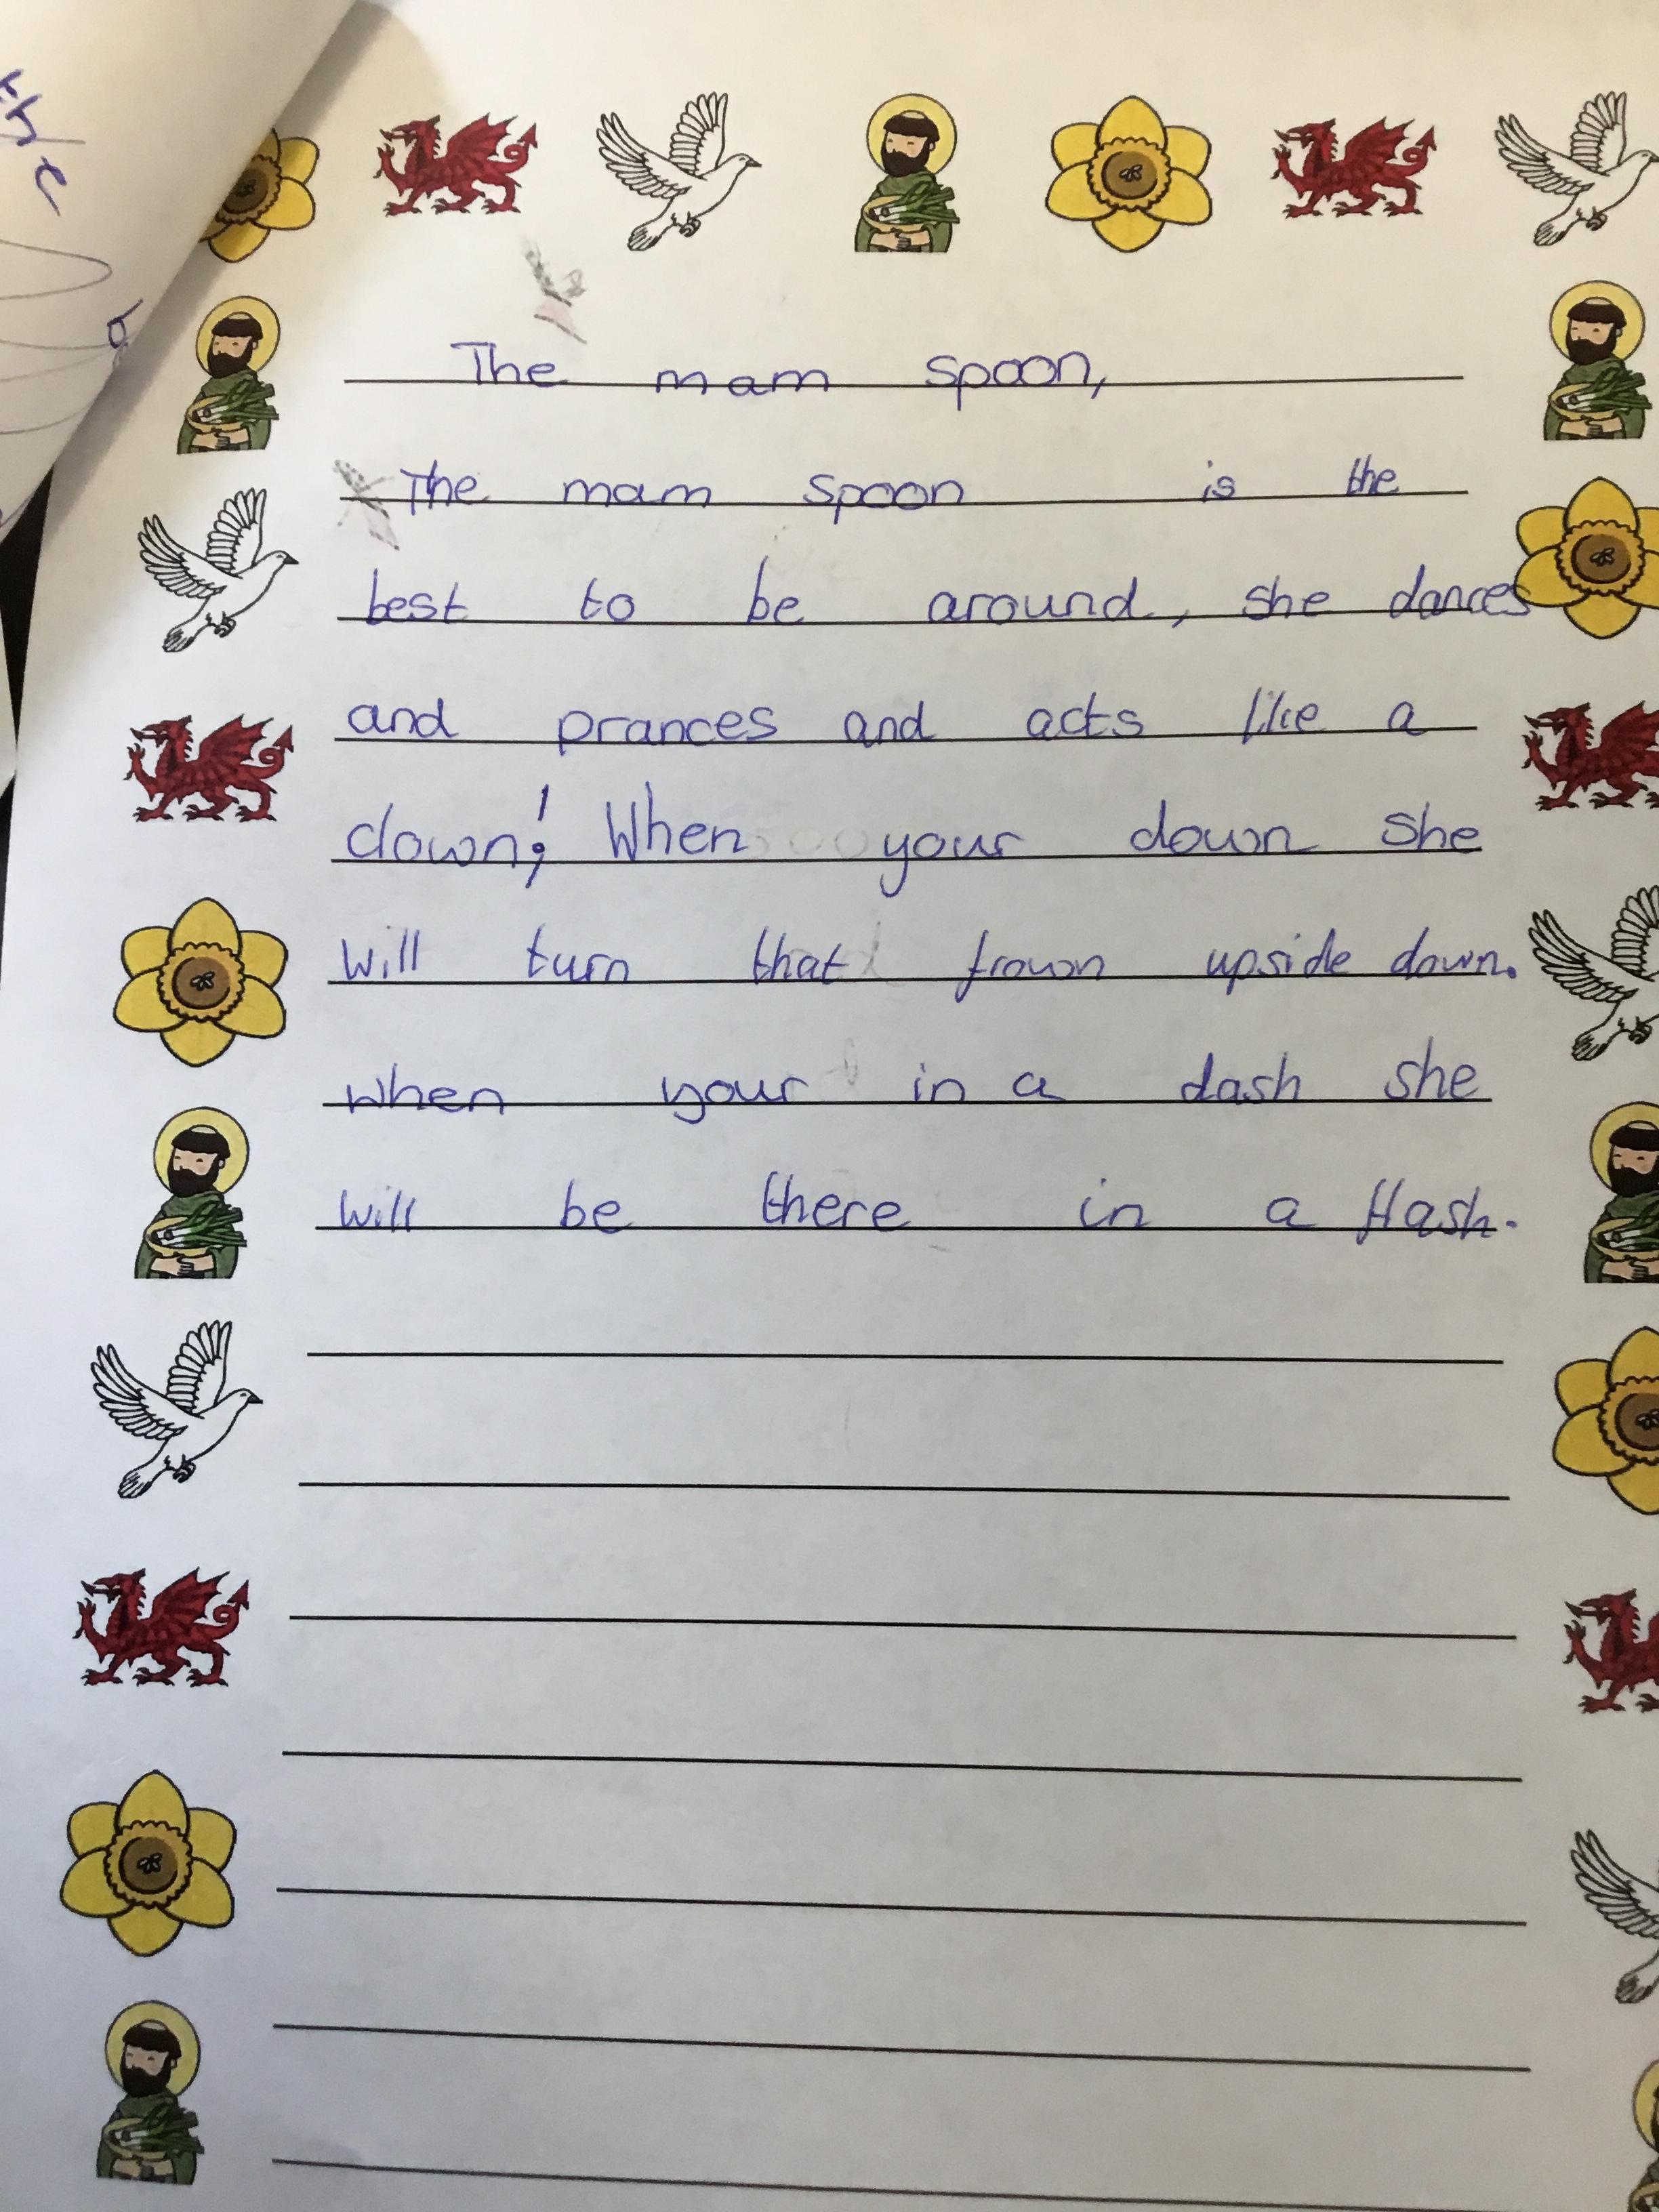 The mam spoon,
The mam spoon is the
best to be around, she dances
and prances and acts like a
clown! When your down she
will turn that frown upside down.
when your in a dash she
will be there in a flash.